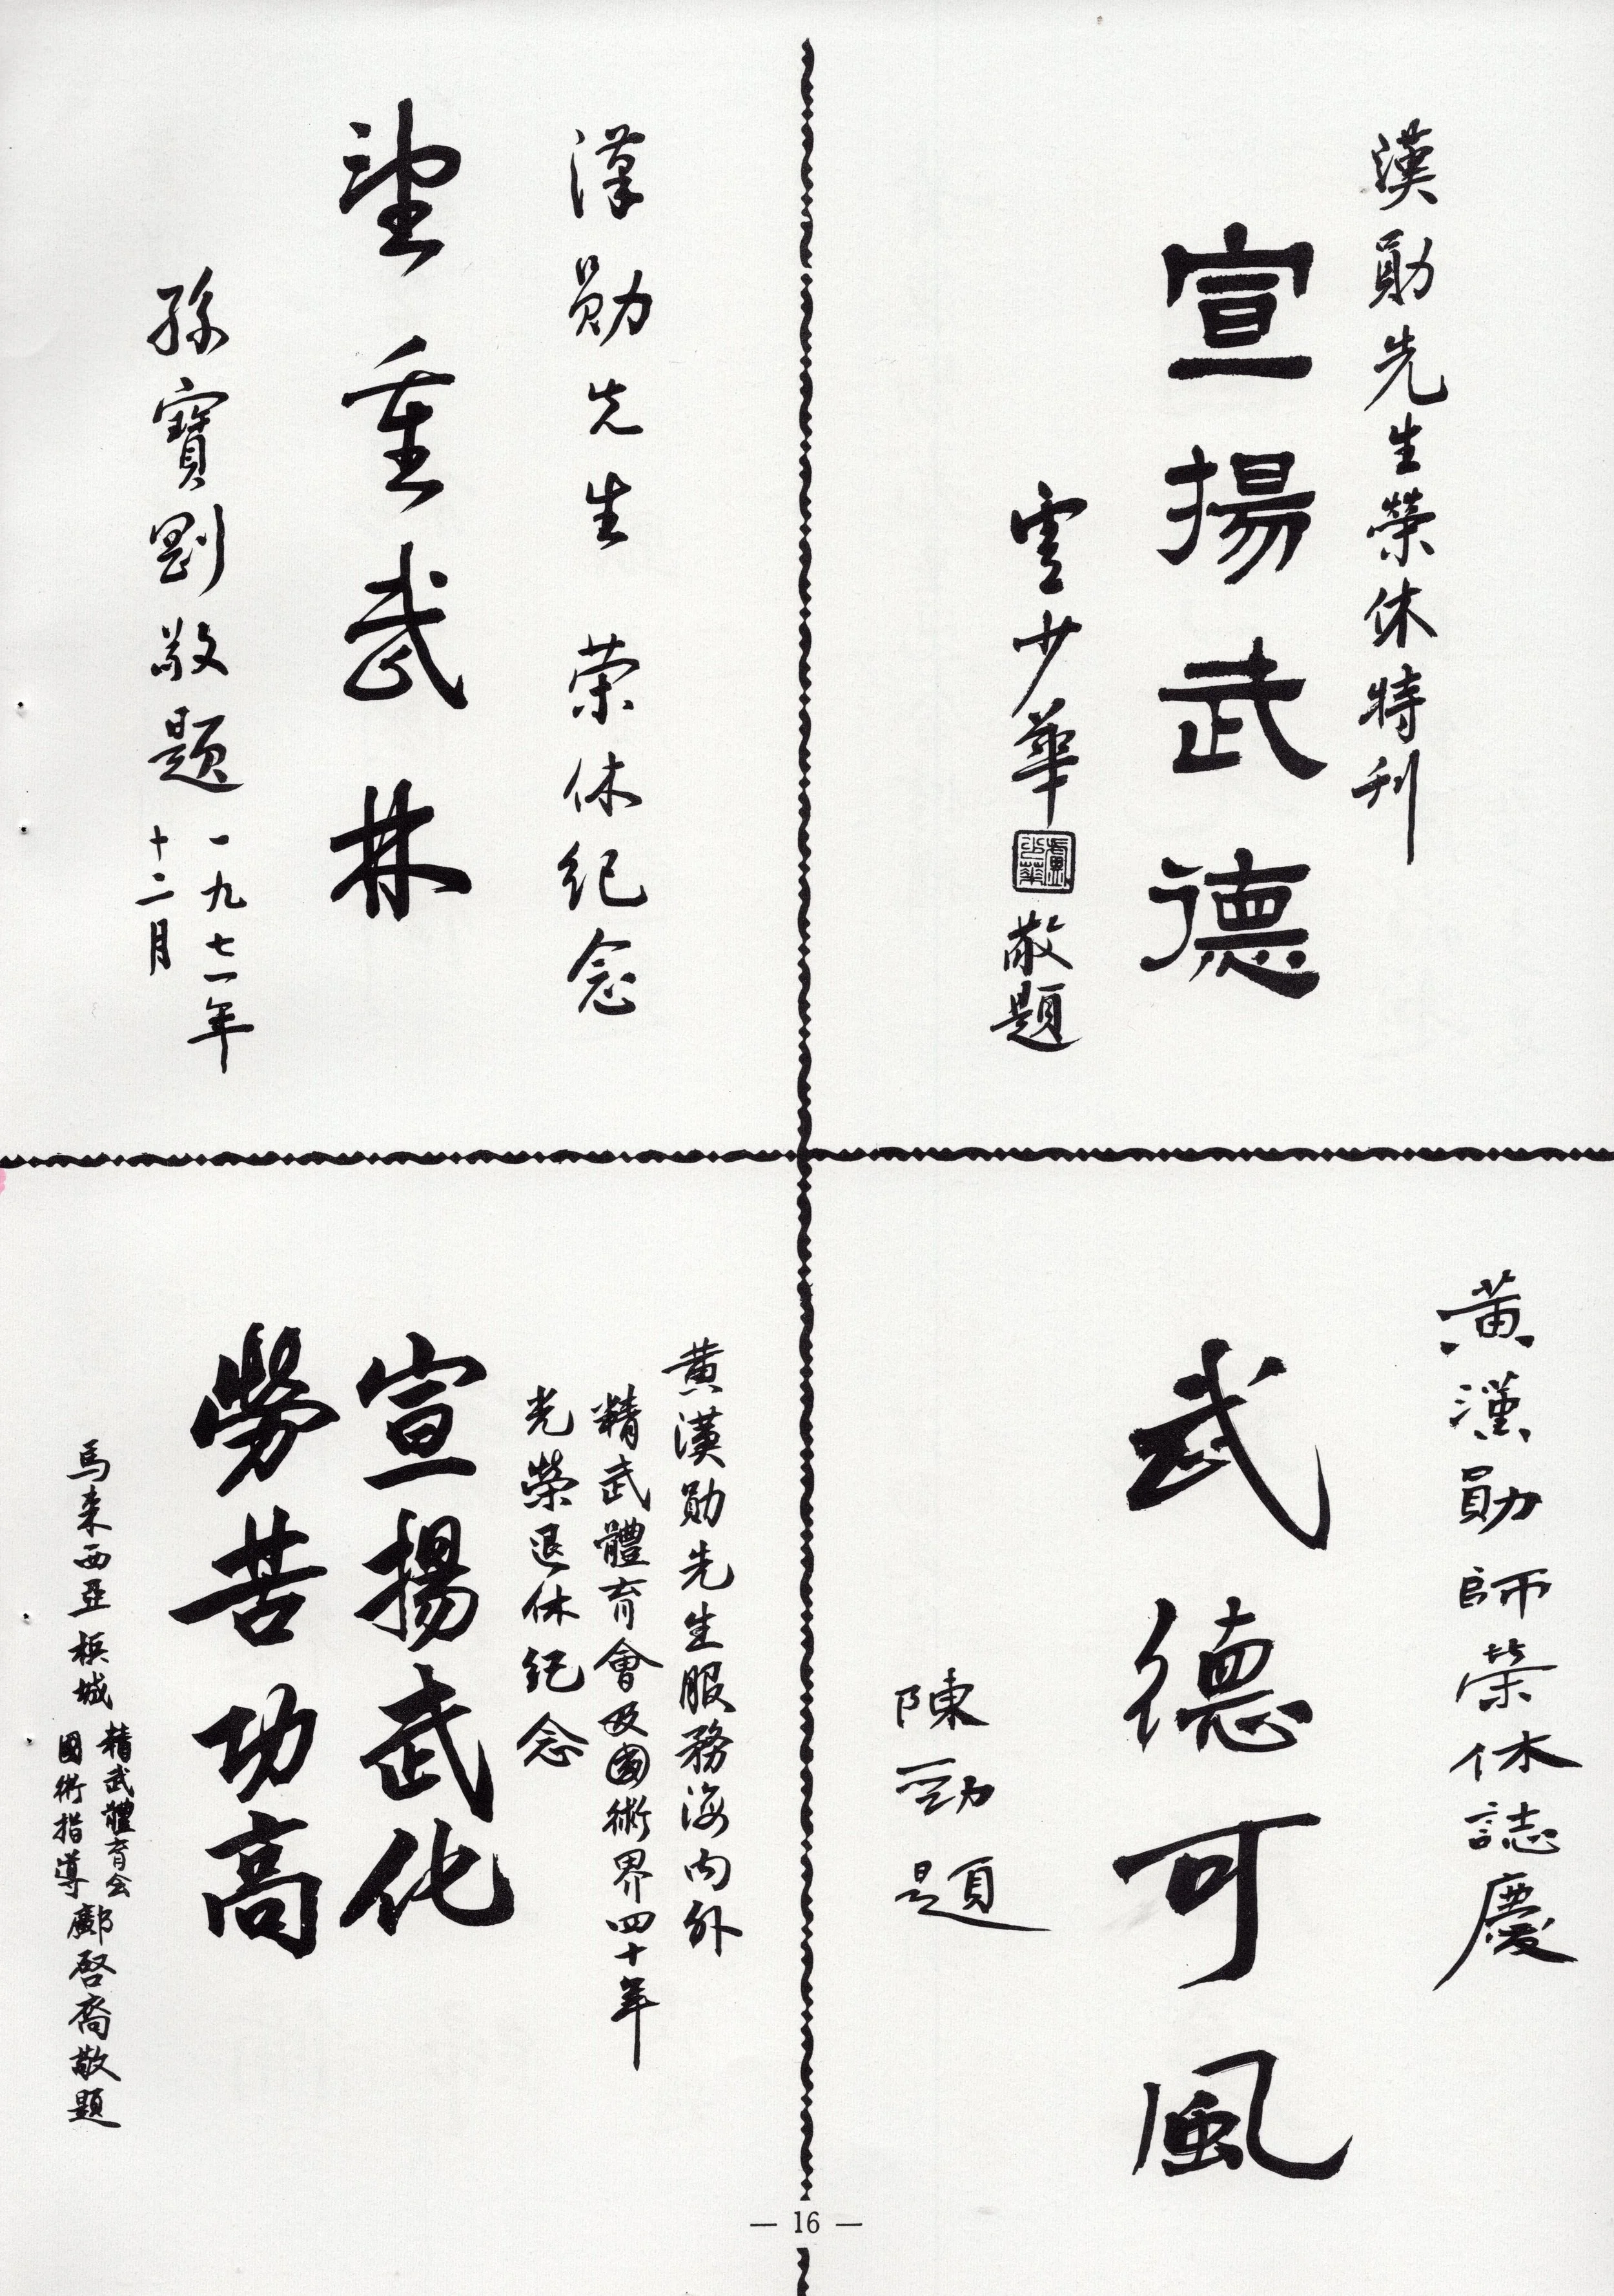 漢勛先生榮休特刊
宣揚武德
雲少華
敬題
漢勛先生 荣休纪念
望重武林
孫寶剛敬题
一九七一年
十二月
黃漢勛師榮休誌慶
武德可風
陳勁題
黄漢勛先生服務海内外
精武體育會及國術界四十年
光榮退休纪念
宣揚武化
勞苦功高
馬来西亚槟城
精武體育会
國術指導
鄺啓裔敬題
— 16 —